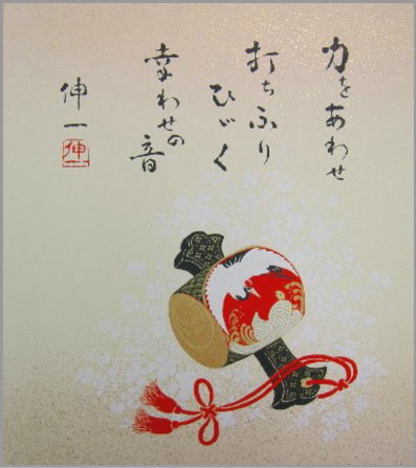 力をあわせ
打ちふり
ひゞく
幸わせの
音
伸一
伸一